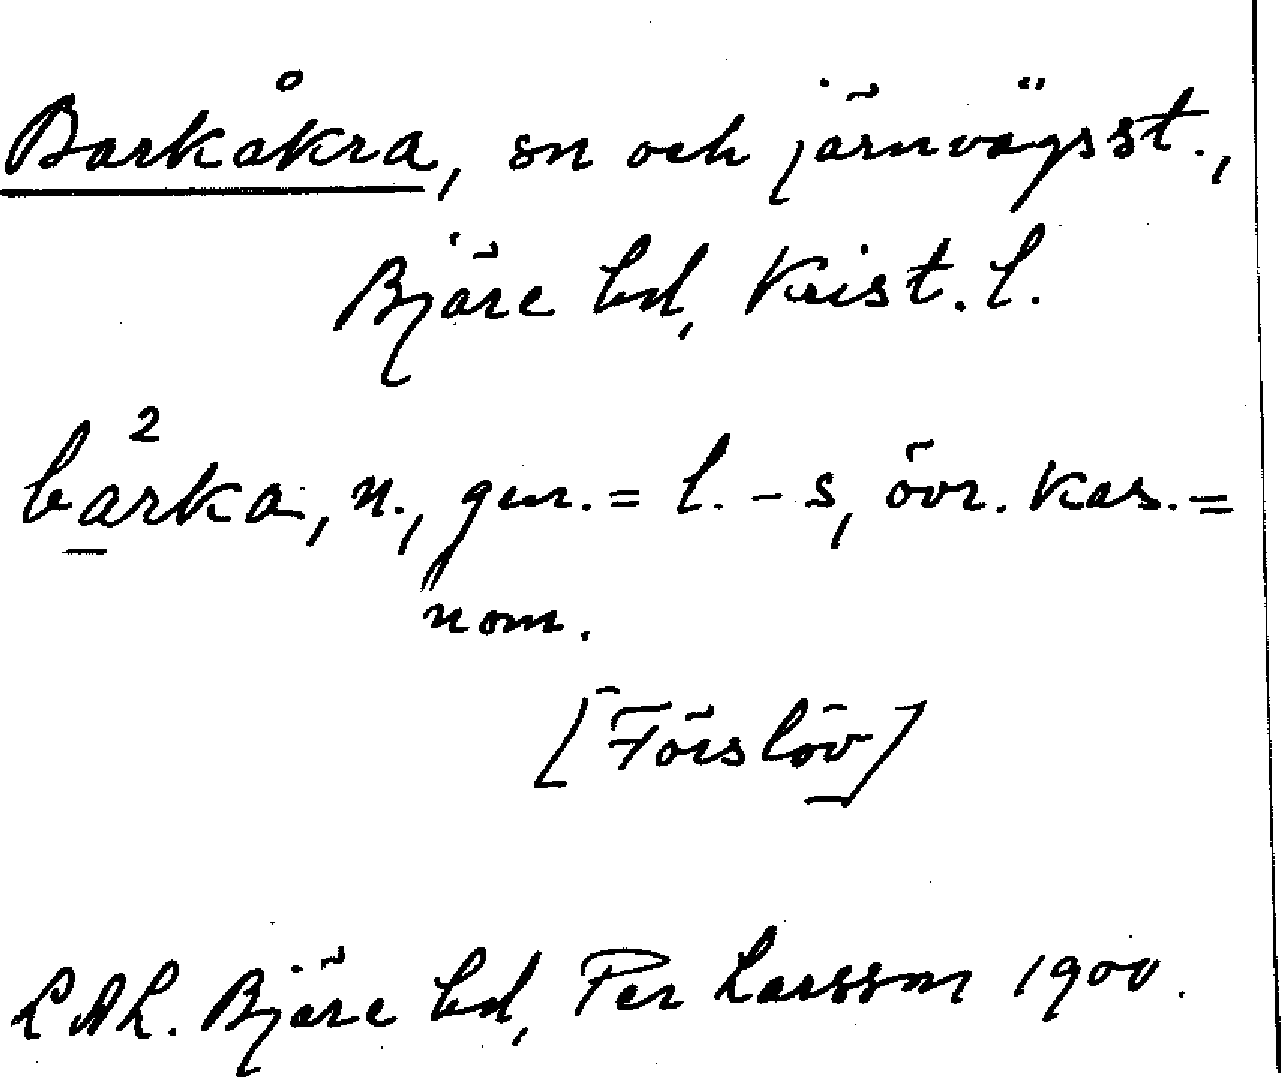 Barkåkra, sn och järnvägsst.,
Bjäre hd, Krist. l.
2
barka, n., gen. = l. -s, övr. kas. =
nom.
[Förslöv]
LAL. Bjäre hd, Per Larsson 1900.